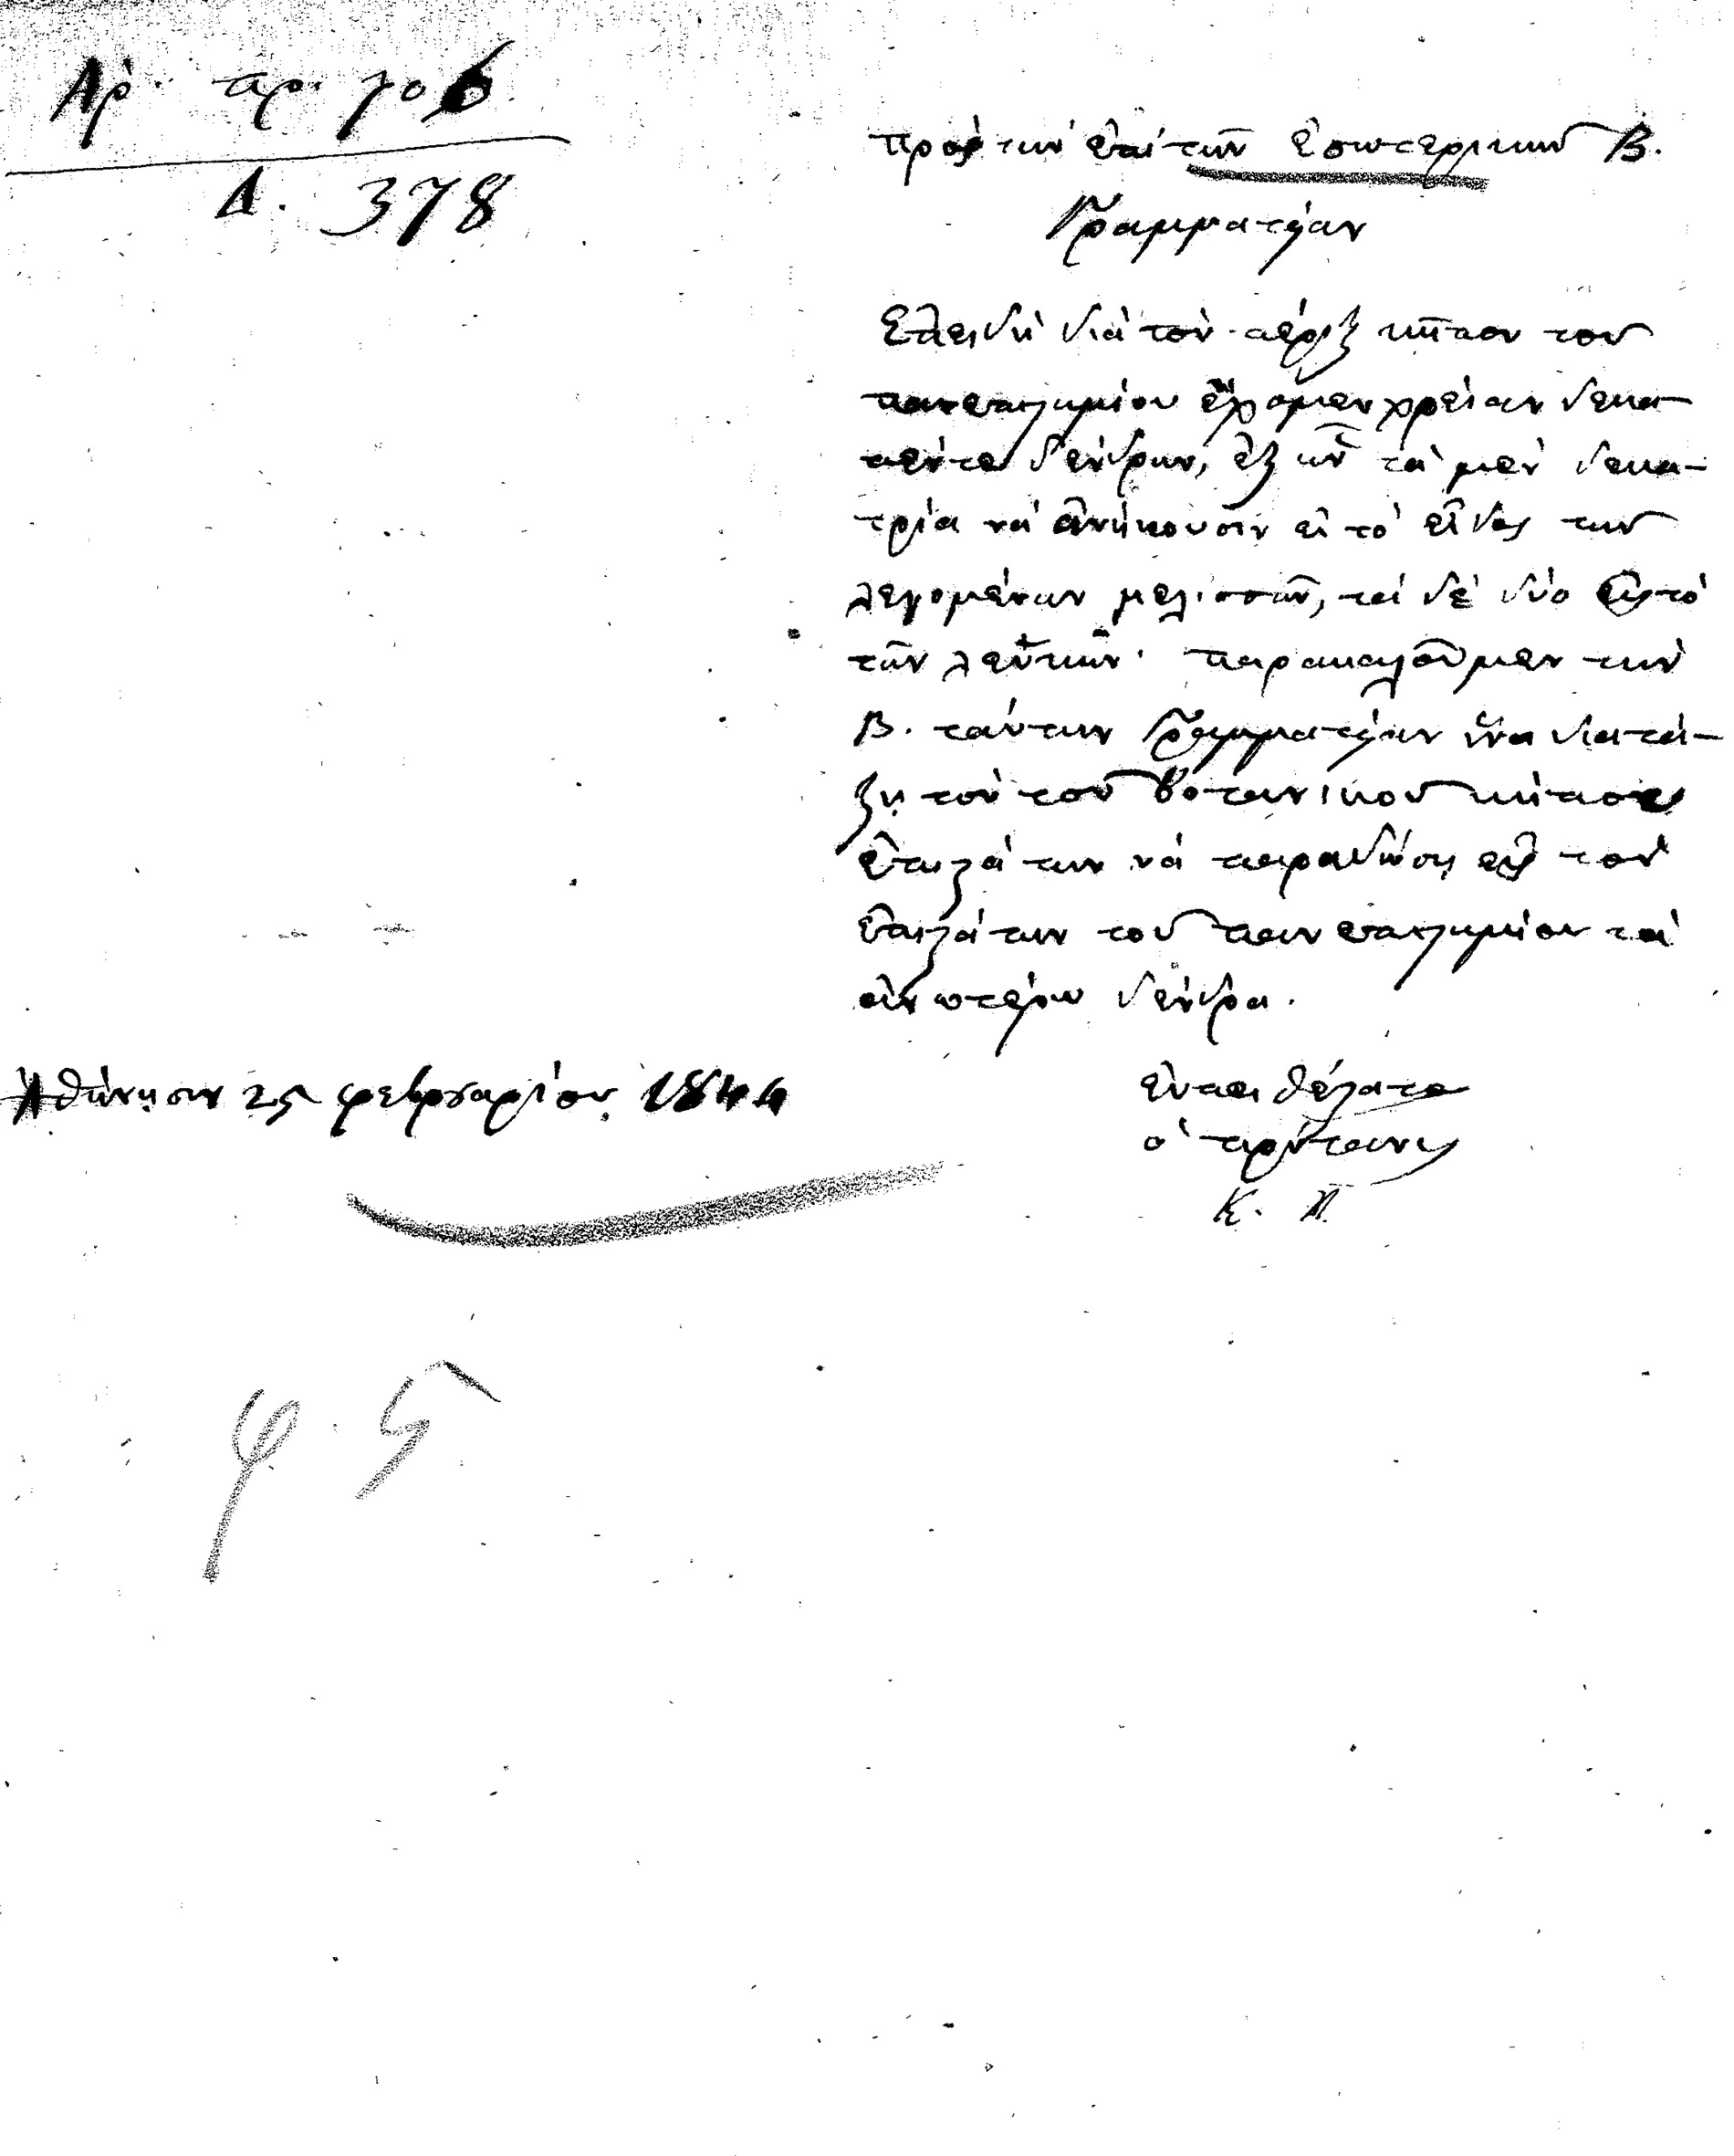 Ἀρ. πρ. 706
Δ. 378
Πρὸς τὴν ἐπὶ τῶν ἐσωτερικῶν Β.
Γραμματείαν
Ἐπειδὴ διὰ τὸν πέριξ κῆπον τοῦ
πανεπιστημίου ἔχομεν χρείαν δεκα-
πέντε δένδρων, ἐξ ὧν τὰ μὲν δεκα-
τρία νὰ ἀνήκουσιν εἰς τὸ εἶδος τῶν
λεγομένων μελισσῶν, τὰ δὲ δύο εἰς τὸ
τῶν λευκῶν· παρακαλοῦμεν τὴν
Β. ταύτην Γραμματείαν ἵνα διατά-
ξῃ τὸν τοῦ βοτανικοῦ κήπου
ἐπιστάτην νὰ παραδώσῃ εἰς τὸν
ἐπιστάτην τοῦ πανεπιστημίου τὰ
ἀνωτέρω δένδρα.
Ἀθήνησιν 25 φεβρουαρίου 1844
εὐπειθέστατος
ὁ πρύτανις
Κ. Π.
φ. 5